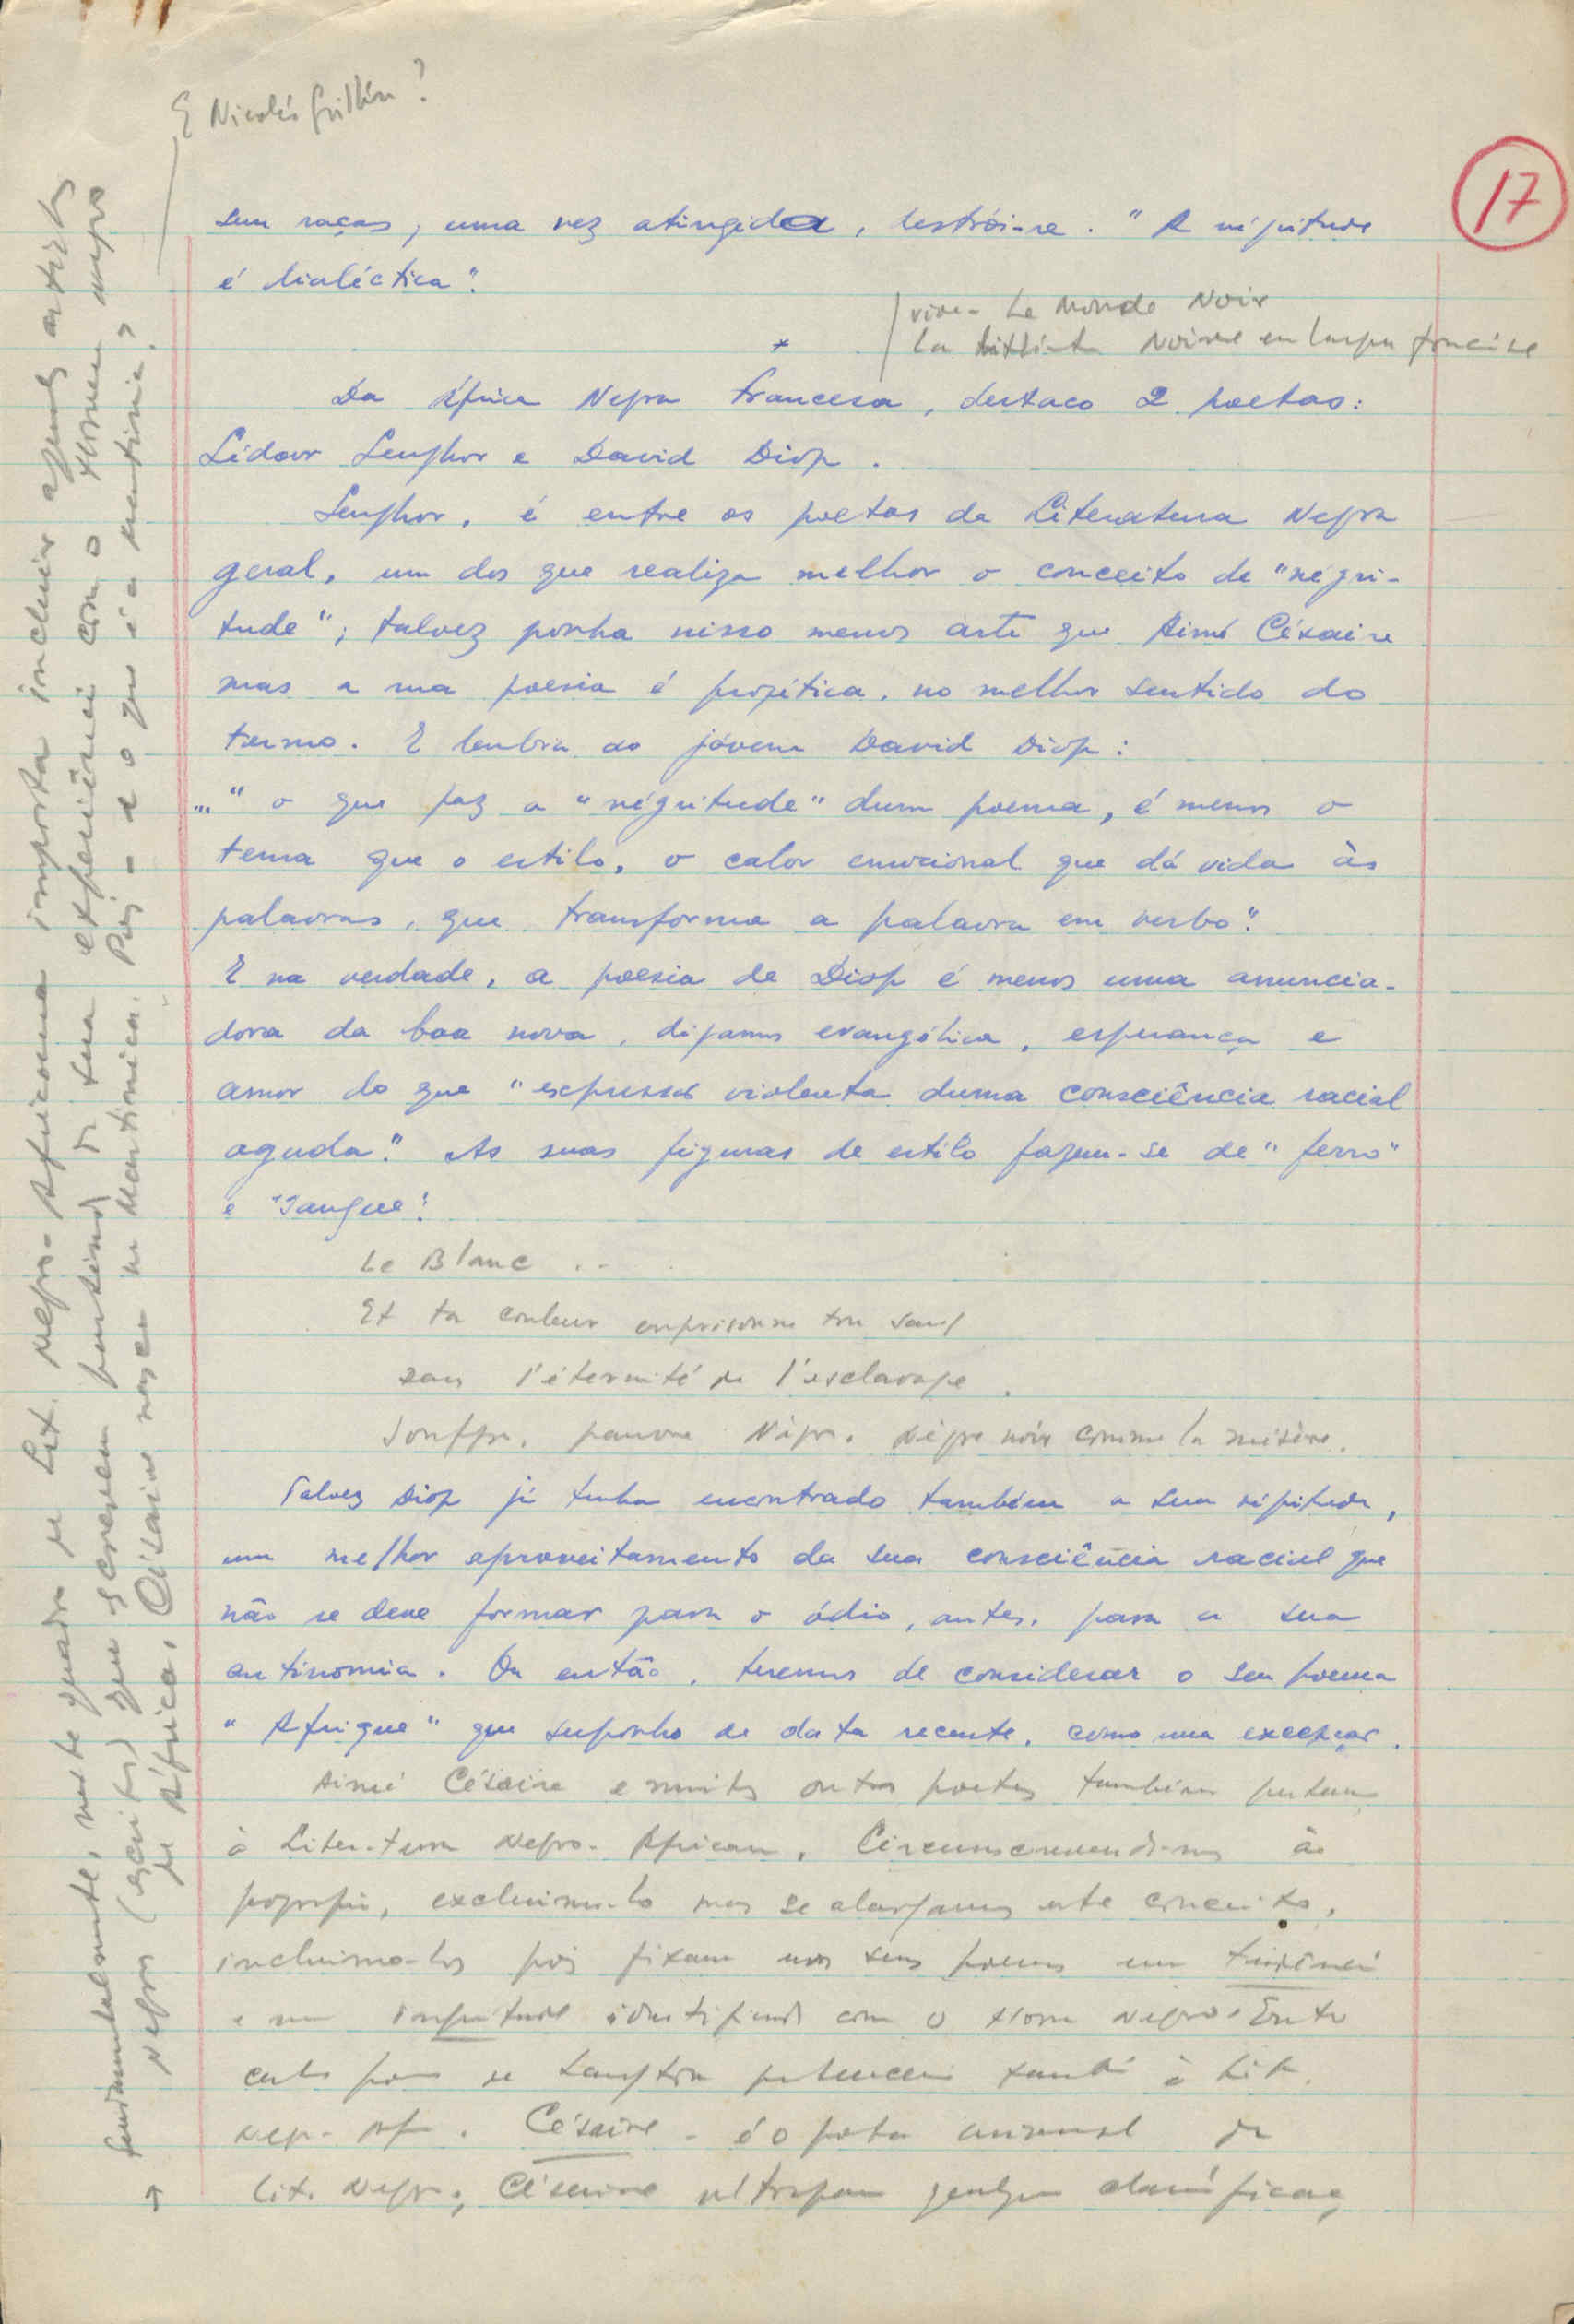 E Nicolás Guillén?
17
sem raças, uma vez atingida, destrói-se. "A négritude
é dialéctica".
vive- Le Monde Noir
La Noire en langue
*
Da África Negra francesa, destaco 2 poetas:
Lédour Senghor e David Diop.
Senghor, é entre os poetas da Literatura Negra
geral, um dos que realiza melhor o conceito de "négri-
tude"; talvez ponha nisso menos arte que Aimé Césaire
mas a sua poesia é profética, no melhor sentido do
termo. E lembra ao jóvem David Diop:
..." o que faz a "négritude" dum poema, é menos o
tema que o estilo, o calor emocional que dá vida às
palavras, que transforma a palavra em verbo".
E na verdade, a poesia de Diop é menos uma anuncia-
dora da boa nova, digamos evangélica, esperança e
amor do que "expressão violenta duma consciência racial
aguda". As suas figuras de estilo fazem-se de "ferro"
e "sangue".
Le Blanc ..
Et ta couleur emprisonne ton sang
dans l'éternité de l'esclavage.
Souffre, pauvre Nègre. Nègre noir comme la misère.
Talvez Diop já tenha encontrado também a sua négritude,
um melhor aproveitamento da sua consciência racial que
não se deve formar para o ódio, antes, para a sua
antinomia. Ou então, teremos de considerar o seu poema
"Afrique" que suponho de data recente, como uma excepção.
Aimé Césaire e muitos outros poetas também
à Literatura Negro-Africana. Circunscrevendo-nos à
excluimo-lo mas se alargamos este conceito,
incluimo-los pois fixam nos seus poemas uma
e uma identificando com o Homem Negro. Entre
Langston também à Lit.
Neg. Af. Césaire - é o poeta universal da
Lit. Negra; Césaire ultrapassa qualquer classificação
→ fundamentalmente, neste quadro de Lit. Negro-Africana importa incluir aquelas artistas
Negros (escritos) que escrevem partindo da sua experiência com o Homem negro
de África. Césaire nasceu na Martinica. Pois - e o que é a Martinica?